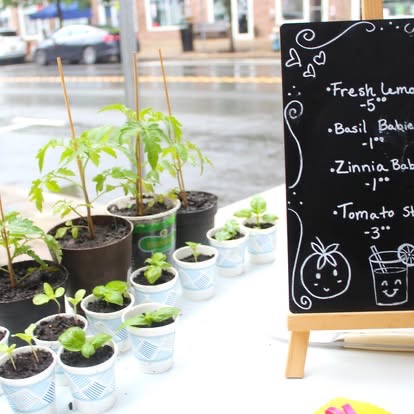 •Fresh Lemo
-5⁰⁰
•Basil Babie
-1⁰⁰
•Zinnia Bab
-1⁰⁰
•Tomato St
-3⁰⁰